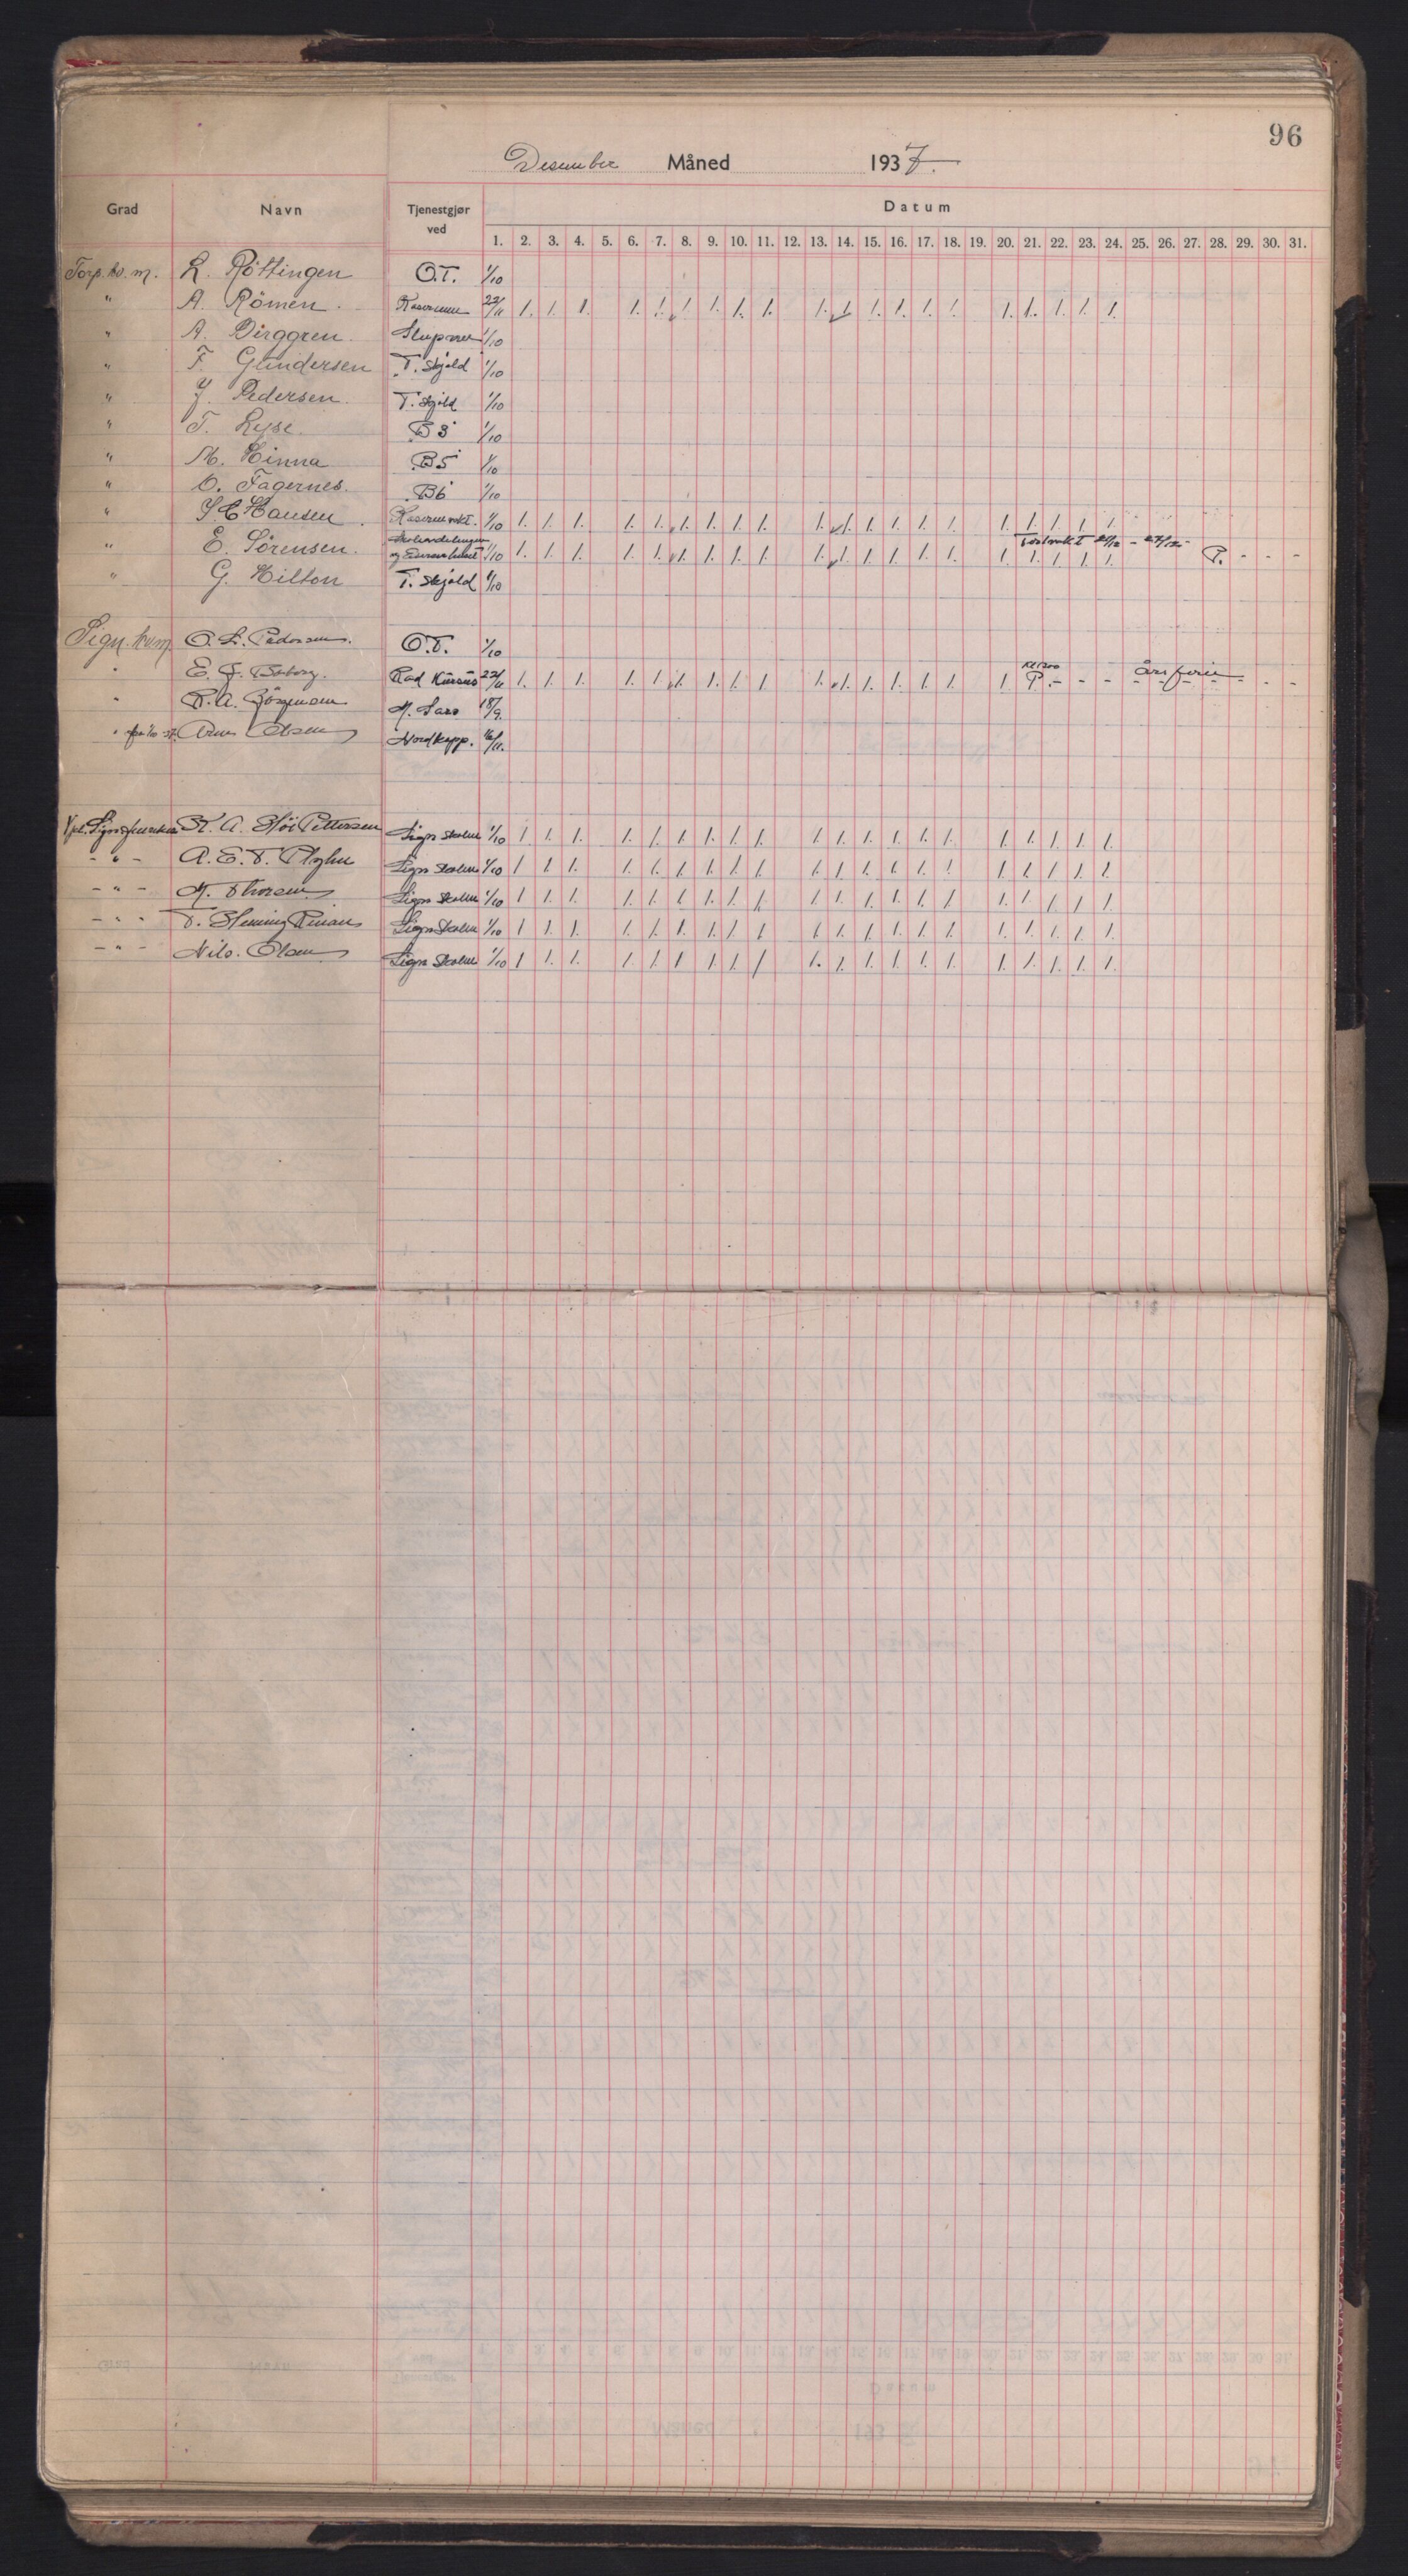 96
Desember Måned 1937.
Grad Navn Tjenestgjør ved Datum
1. 2. 3. 4. 5. 6. 7. 8. 9. 10. 11. 12. 13. 14. 15. 16. 17. 18. 19. 20. 21. 22. 23. 24. 25. 26. 27. 28. 29. 30. 31.
Torp. kv. m. L. Röttingen O.T. 1/10
" A. Römen. 22/11 1. 1. 1. 1. 1. 1. 1. 1. 1. 1. 1. 1. 1. 1. 1. 1. 1. 1. 1. 1.
" A. Birggren. 1/10
" F. Gundersen T. Skjold 1/10
" J. Pedersen. T. Skjold 1/10
" T. Lyse. B3 1/10
" M. Hinna B5 1/10
" O. Fagernes. B6 1/10
" Hansen. 1/10 1. 1. 1. 1. 1. 1. 1. 1. 1. 1. 1. 1. 1. 1. 1. 1. 1. 1. 1. 1.
" E. Sörensen. 1/10 1. 1. 1. 1. 1. 1. 1. 1. 1. 1. 1. 1. 1. 1. 1. 1. 1. 1. 1. 1. P. - - -
" G. Hilton T. Skjold 1/10
Sign. kv.m. O. L. Pedersen. O.T. 1/10
" E. J. Rad Kursus 22/11 1. 1. 1. 1. 1. 1. 1. 1. 1. 1. 1. 1. 1. 1. 1. 1. 1. P. - - - årsferie - - -
" M. Sars 18/9.
" Arne Olsen Nordkapp. 16/11.
K. A. Höi Pettersen Sign skolen 1/10 1 1. 1. 1. 1. 1. 1. 1. 1. 1. 1. 1. 1. 1. 1. 1. 1. 1. 1. 1.
- " - A. E. T. Sign Skolen 1/10 1 1. 1. 1. 1. 1. 1. 1. 1. 1. 1. 1. 1. 1. 1. 1. 1. 1. 1. 1.
- " - M. Thorsen Sign Skolen 1/10 1 1. 1. 1. 1. 1. 1. 1. 1. 1. 1. 1. 1. 1. 1. 1. 1. 1. 1. 1.
- " - Sign Skolen 1/10 1 1. 1. 1. 1. 1. 1. 1. 1. 1. 1. 1. 1. 1. 1. 1. 1. 1. 1. 1.
- " - Nils. Olsen Sign Skolen 1/10 1 1. 1. 1. 1. 1. 1. 1. 1. 1. 1. 1. 1. 1. 1. 1. 1. 1. 1. 1.